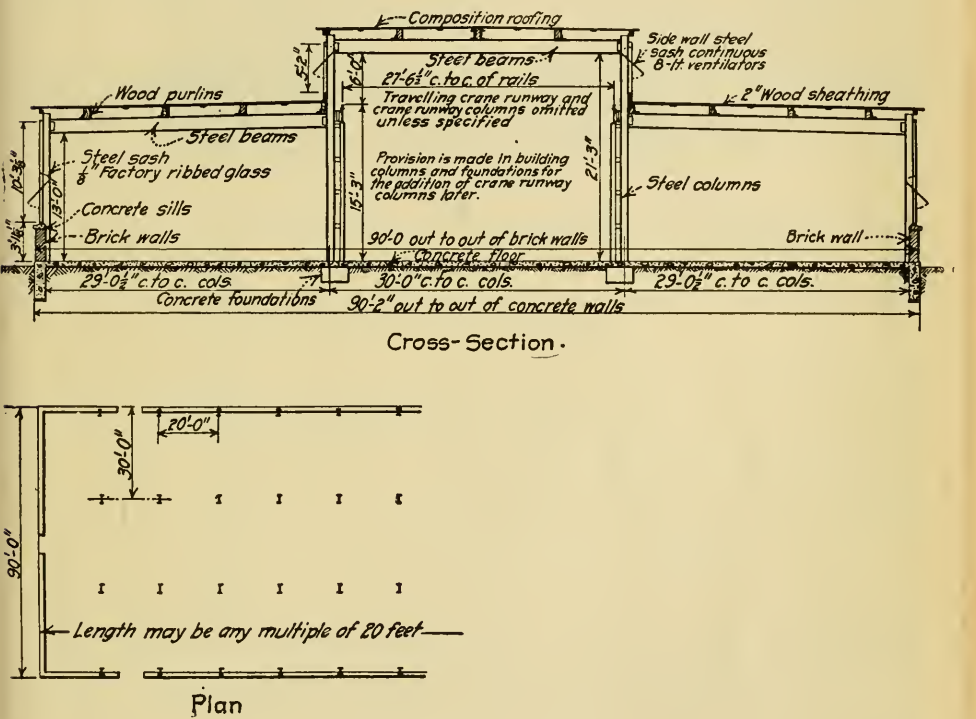 Composition roofing
Side wall steel
sash continuous
8-lt. ventilators
5'-2"
6'-0"
Steel beams
27'-6½" c. to c. of rails
Wood purlins
Travelling crane runway and
crane runway columns omitted
unless specified
2" Wood sheathing
Steel beams
Steel sash
⅛" Factory ribbed glass
13'-0"
15'-3"
21'-3"
Provision is made in building
columns and foundations for
the addition of crane runway
columns later.
Steel columns
Concrete sills
Brick walls
90'-0 out to out of brick walls
Brick wall
Concrete floor
29'-0½" c. to c. cols.
30'-0" c. to c. cols.
29'-0½" c. to c. cols.
Concrete foundations
90'-2" out to out of concrete walls
Cross-Section.
20'-0"
30'-0"
90'-0"
Length may be any multiple of 20 feet
Plan